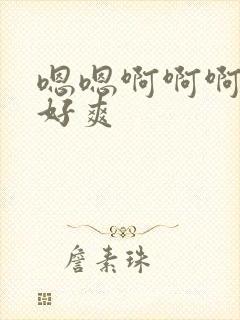 嗯嗯啊啊啊
好爽
詹素珠